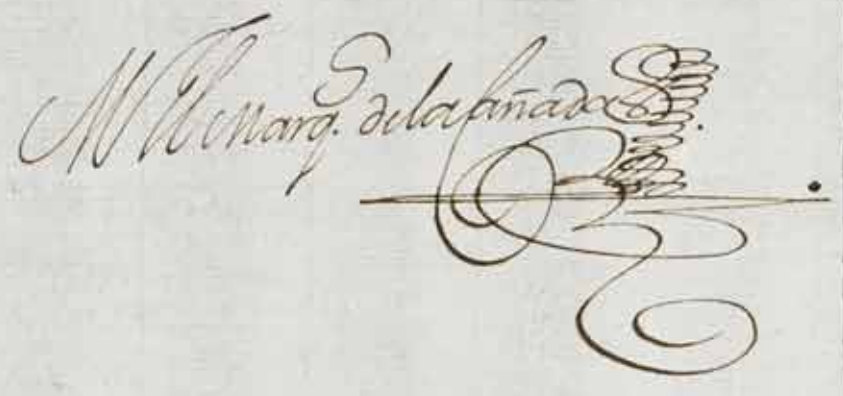 El Marqs. de la Cañada